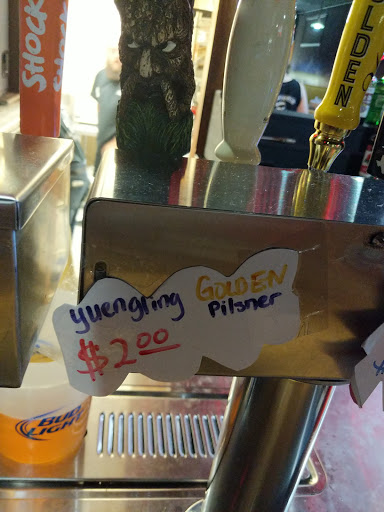 SHOCK
OLDEN
yuengling GOLDEN
Pilsner
$2.00
BUD
LIGHT